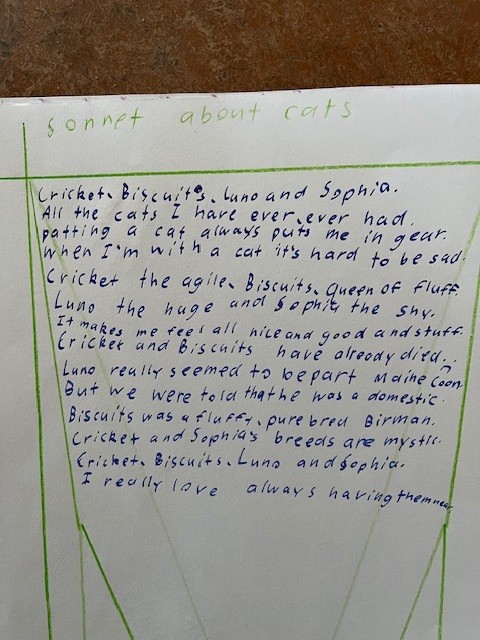 sonnet about cats
Cricket, Biscuits, Luno and Sophia.
All the cats I have ever, ever had.
patting a cat always puts me in gear.
When I'm with a cat it's hard to be sad.
Cricket the agile, Biscuits, Queen of fluff.
Luno the huge and Sophia the shy.
It makes me feel all nice and good and stuff.
Cricket and Biscuits have already died...
Luno really seemed to be part Maine Coon.
But we were told that he was a domestic.
Biscuits was a fluffy, purebred Birman.
Cricket and Sophia's breeds are mystic.
Cricket, Biscuits, Luno and Sophia.
I really love always having them near.